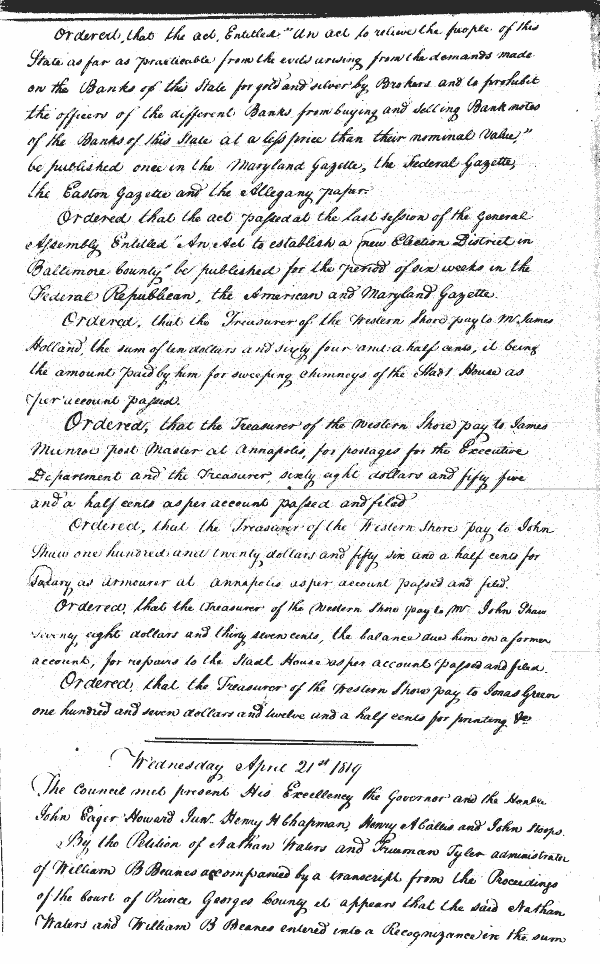 Ordered, that the act, Entitled "An act to relieve the people of this
State as far as practicable from the evils arising from the demands made
on the Banks of this State for gold and silver by Brokers and to prohibit
the officers of the different Banks from buying and selling Bank notes
of the Banks of this State at a less price than their nominal value,"
be published once in the Maryland Gazette, the Federal Gazette,
the Easton Gazette and the Allegany paper.
Ordered that the act passed at the last session of the General
Assembly Entitled "An Act to establish a new Election District in
Baltimore County" be published for the period of six weeks in the
Federal Republican, the American and Maryland Gazette.
Ordered, that the Treasurer of the Western Shore pay to Mr. James
Holland, the sum of ten dollars and sixty four and a half cents, it being
the amount paid by him for sweeping chimneys of the Stadt House as
per account passed.
Ordered, that the Treasurer of the Western Shore pay to James
Munroe Post Master at Annapolis, for postages for the Executive
Department and the Treasurer, sixty eight dollars and fifty five
and a half cents as per account passed and filed
Ordered, that the Treasurer of the Western Shore pay to John
Shaw one hundred and twenty dollars and fifty six and a half cents for
Salary as armourer at Annapolis as per account passed and filed.
Ordered, that the Treasurer of the Western Shore pay to Mr. John Shaw
seventy eight dollars and thirty seven cents, the balance due him on a former
account, for repairs to the Stadt House as per account passed and filed.
Ordered, that the Treasurer of the Western Shore pay to Jonas Green
one hundred and seven dollars and twelve and a half cents for printing &c
Wednesday April 21st 1819
The Council met present His Excellency the Governor and the Honble
John Eager Howard Junr. Henry H Chapman, Henry A Callis and John Stoops.
By the Petition of Nathan Waters and Trueman Tyler administrator
of William B Beanes accompanied by a transcript from the Proceedings
of the Court of Prince Georges County it appears that the said Nathan
Waters and William B Beanes entered into a Recognizance in the sum